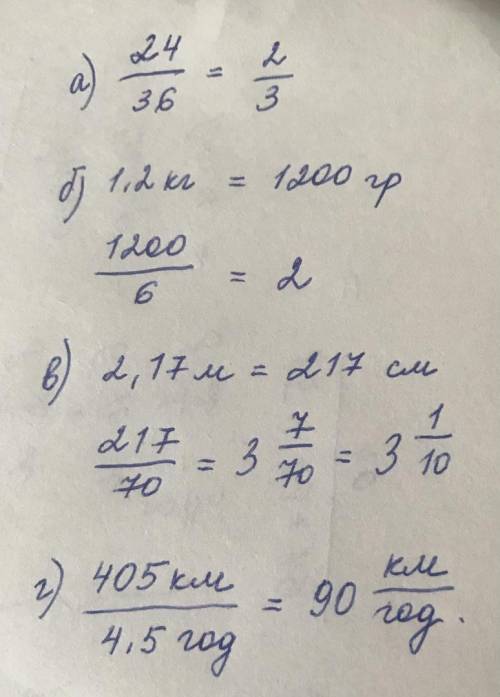 а) 24/36 = 2/3
б) 1,2 кг = 1200 гр
1200/6 = 2
в) 2,17 м = 217 см
217/70 = 3 7/70 = 3 1/10
г) 405 км/4,5 год = 90 км/год.